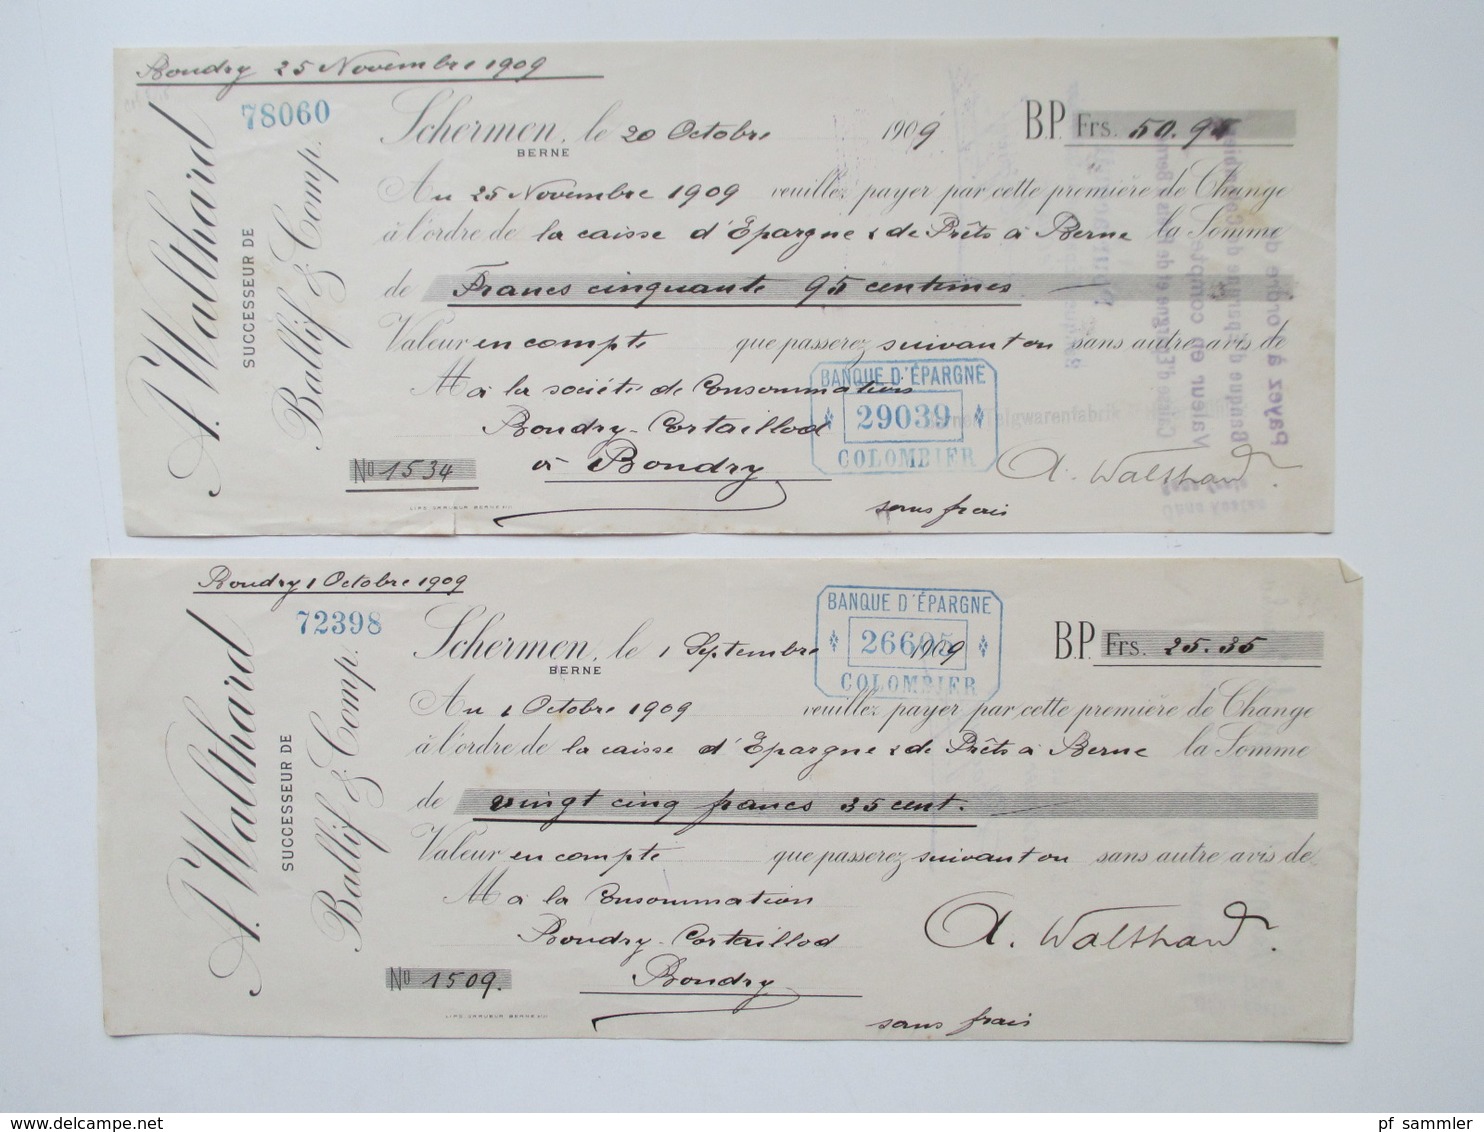 Boudry 25 Novembre 1909
78060
A. Walthard
SUCCESSEUR DE
Ballif & Comp.
Schermen, le 20 Octobre 1909 B.P. Frs. 50.95
BERNE
Au 25 Novembre 1909 veuillez payer par cette première de Change
à l'ordre de la caisse d'Epargne & de Prêts à Berne la Somme
de Francs cinquante 95 centimes
Valeur en compte que passerez suivant ou sans autre avis de
M à la société de Consommation
Boudry-Cortaillod
à Boudry
No 1534
BANQUE D'ÉPARGNE
29039
COLOMBIER
A. Walthard
sans frais
Payez à l'ordre de
Banque d'Epargne de Colombier
Valeur en compte
Caisse d'Epargne et de Prêts, Berne
Ohne Kosten
Boudry 1 Octobre 1909
72398
A. Walthard
SUCCESSEUR DE
Ballif & Comp.
Schermen, le 1 Septembre 1909 B.P. Frs. 25.35
BERNE
BANQUE D'ÉPARGNE
26605
COLOMBIER
Au 1 Octobre 1909 veuillez payer par cette première de Change
à l'ordre de la caisse d'Epargne & de Prêts à Berne la Somme
de vingt cinq francs 35 cent.
Valeur en compte que passerez suivant ou sans autre avis de
M à la Consommation
Boudry-Cortaillod
Boudry
No 1509.
A. Walthard.
sans frais
pf_sammler